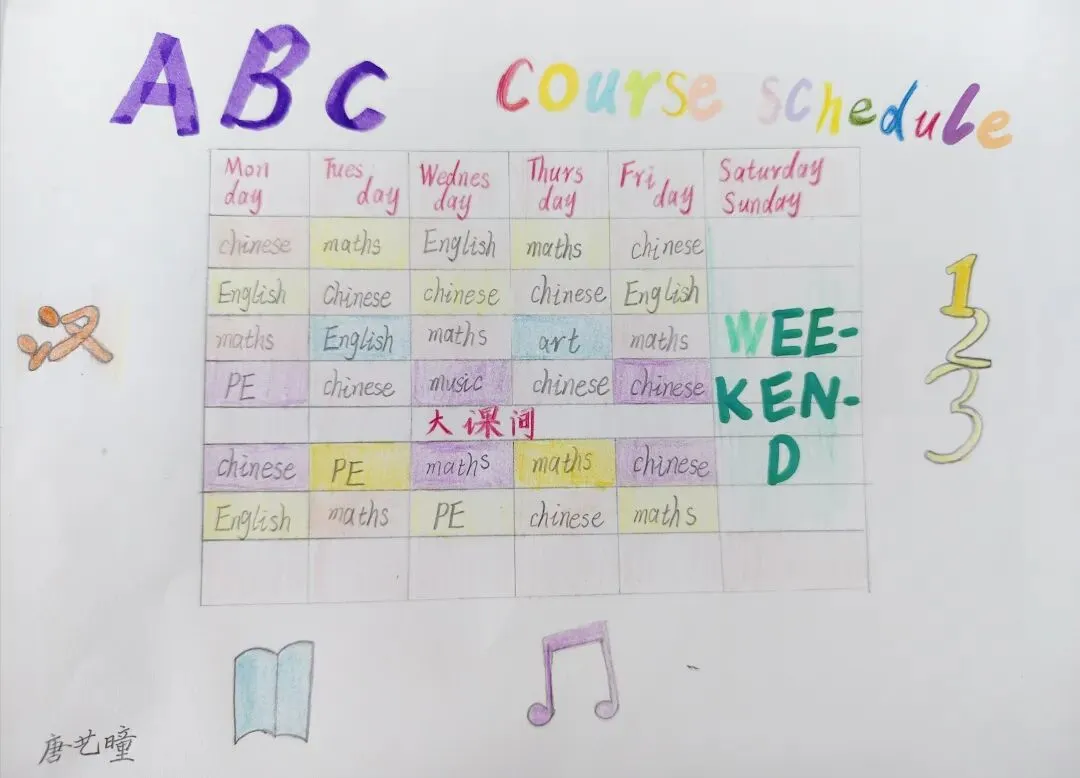 ABC Course schedule
Mon day Tues day Wednes day Thurs day Fri day Saturday Sunday
chinese maths English maths chinese
English Chinese chinese chinese English
maths English maths art maths
PE chinese music chinese chinese
大课间
chinese PE maths maths chinese
English maths PE chinese maths
WEE-
KEN-
D
汉
1
2
3
唐艺曈